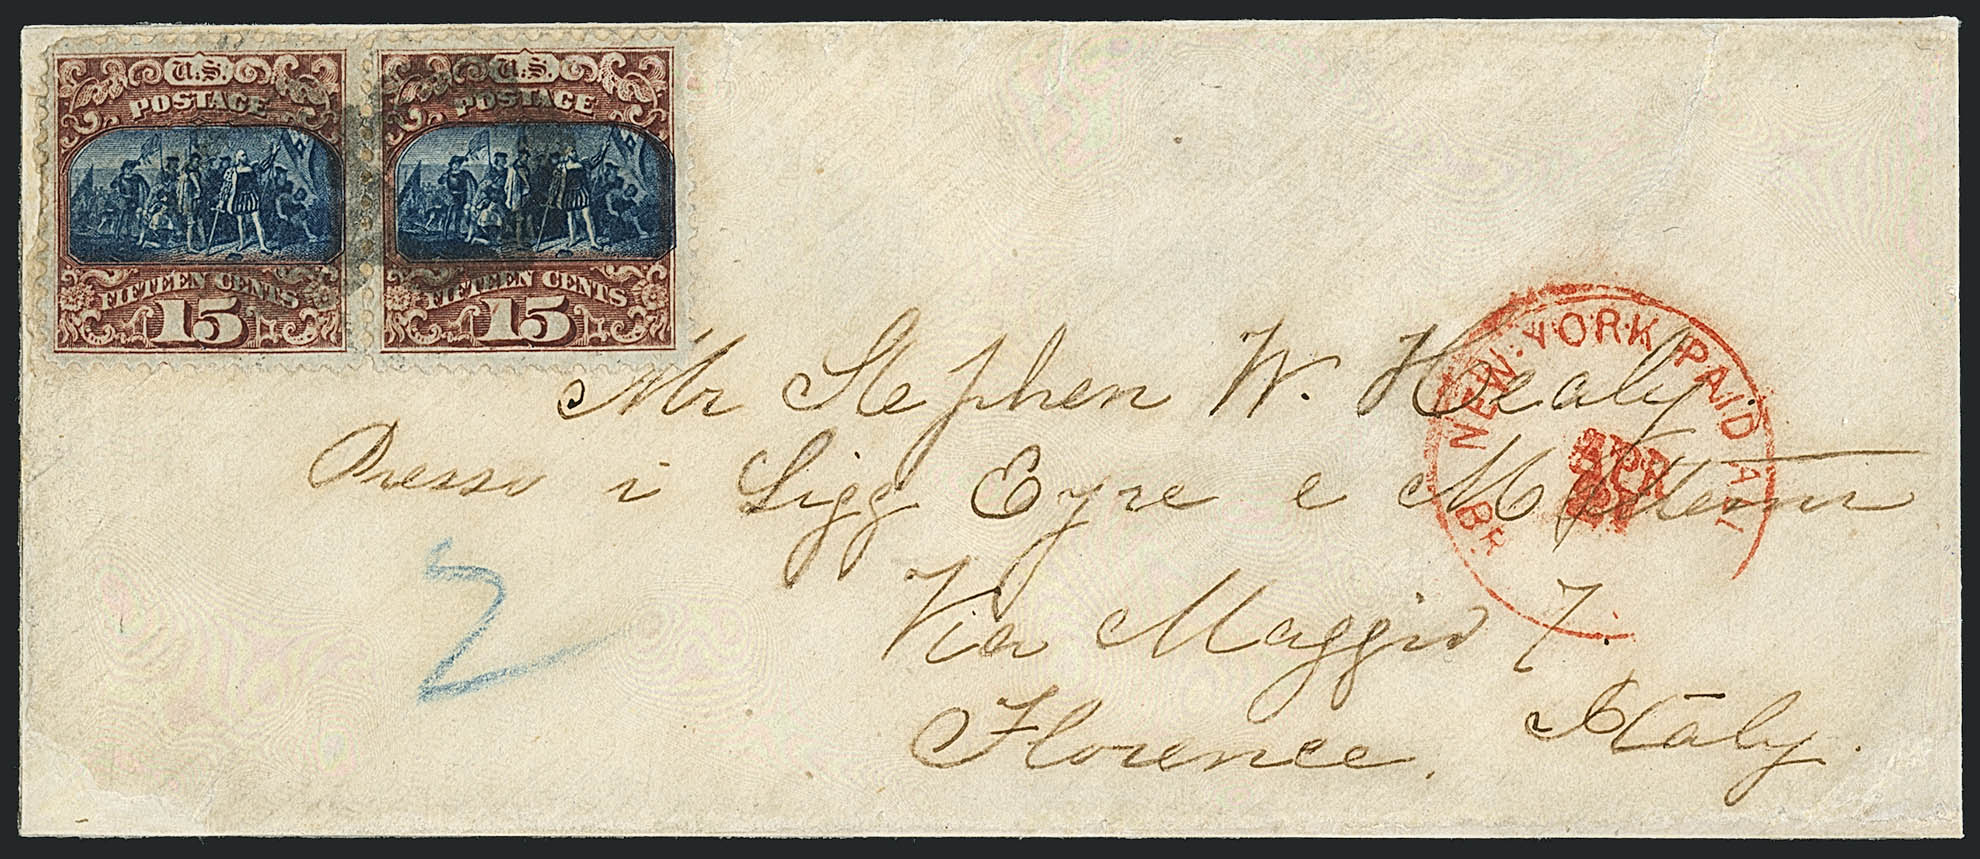 U.S. POSTAGE
FIFTEEN CENTS
15
U.S. POSTAGE
FIFTEEN CENTS
15
Mr Stephen W. Healy.
Presso i Sigg Eyre e
Via Maggio 7.
Florence. Italy.
2
NEW YORK PAID ALL
BR.
APR